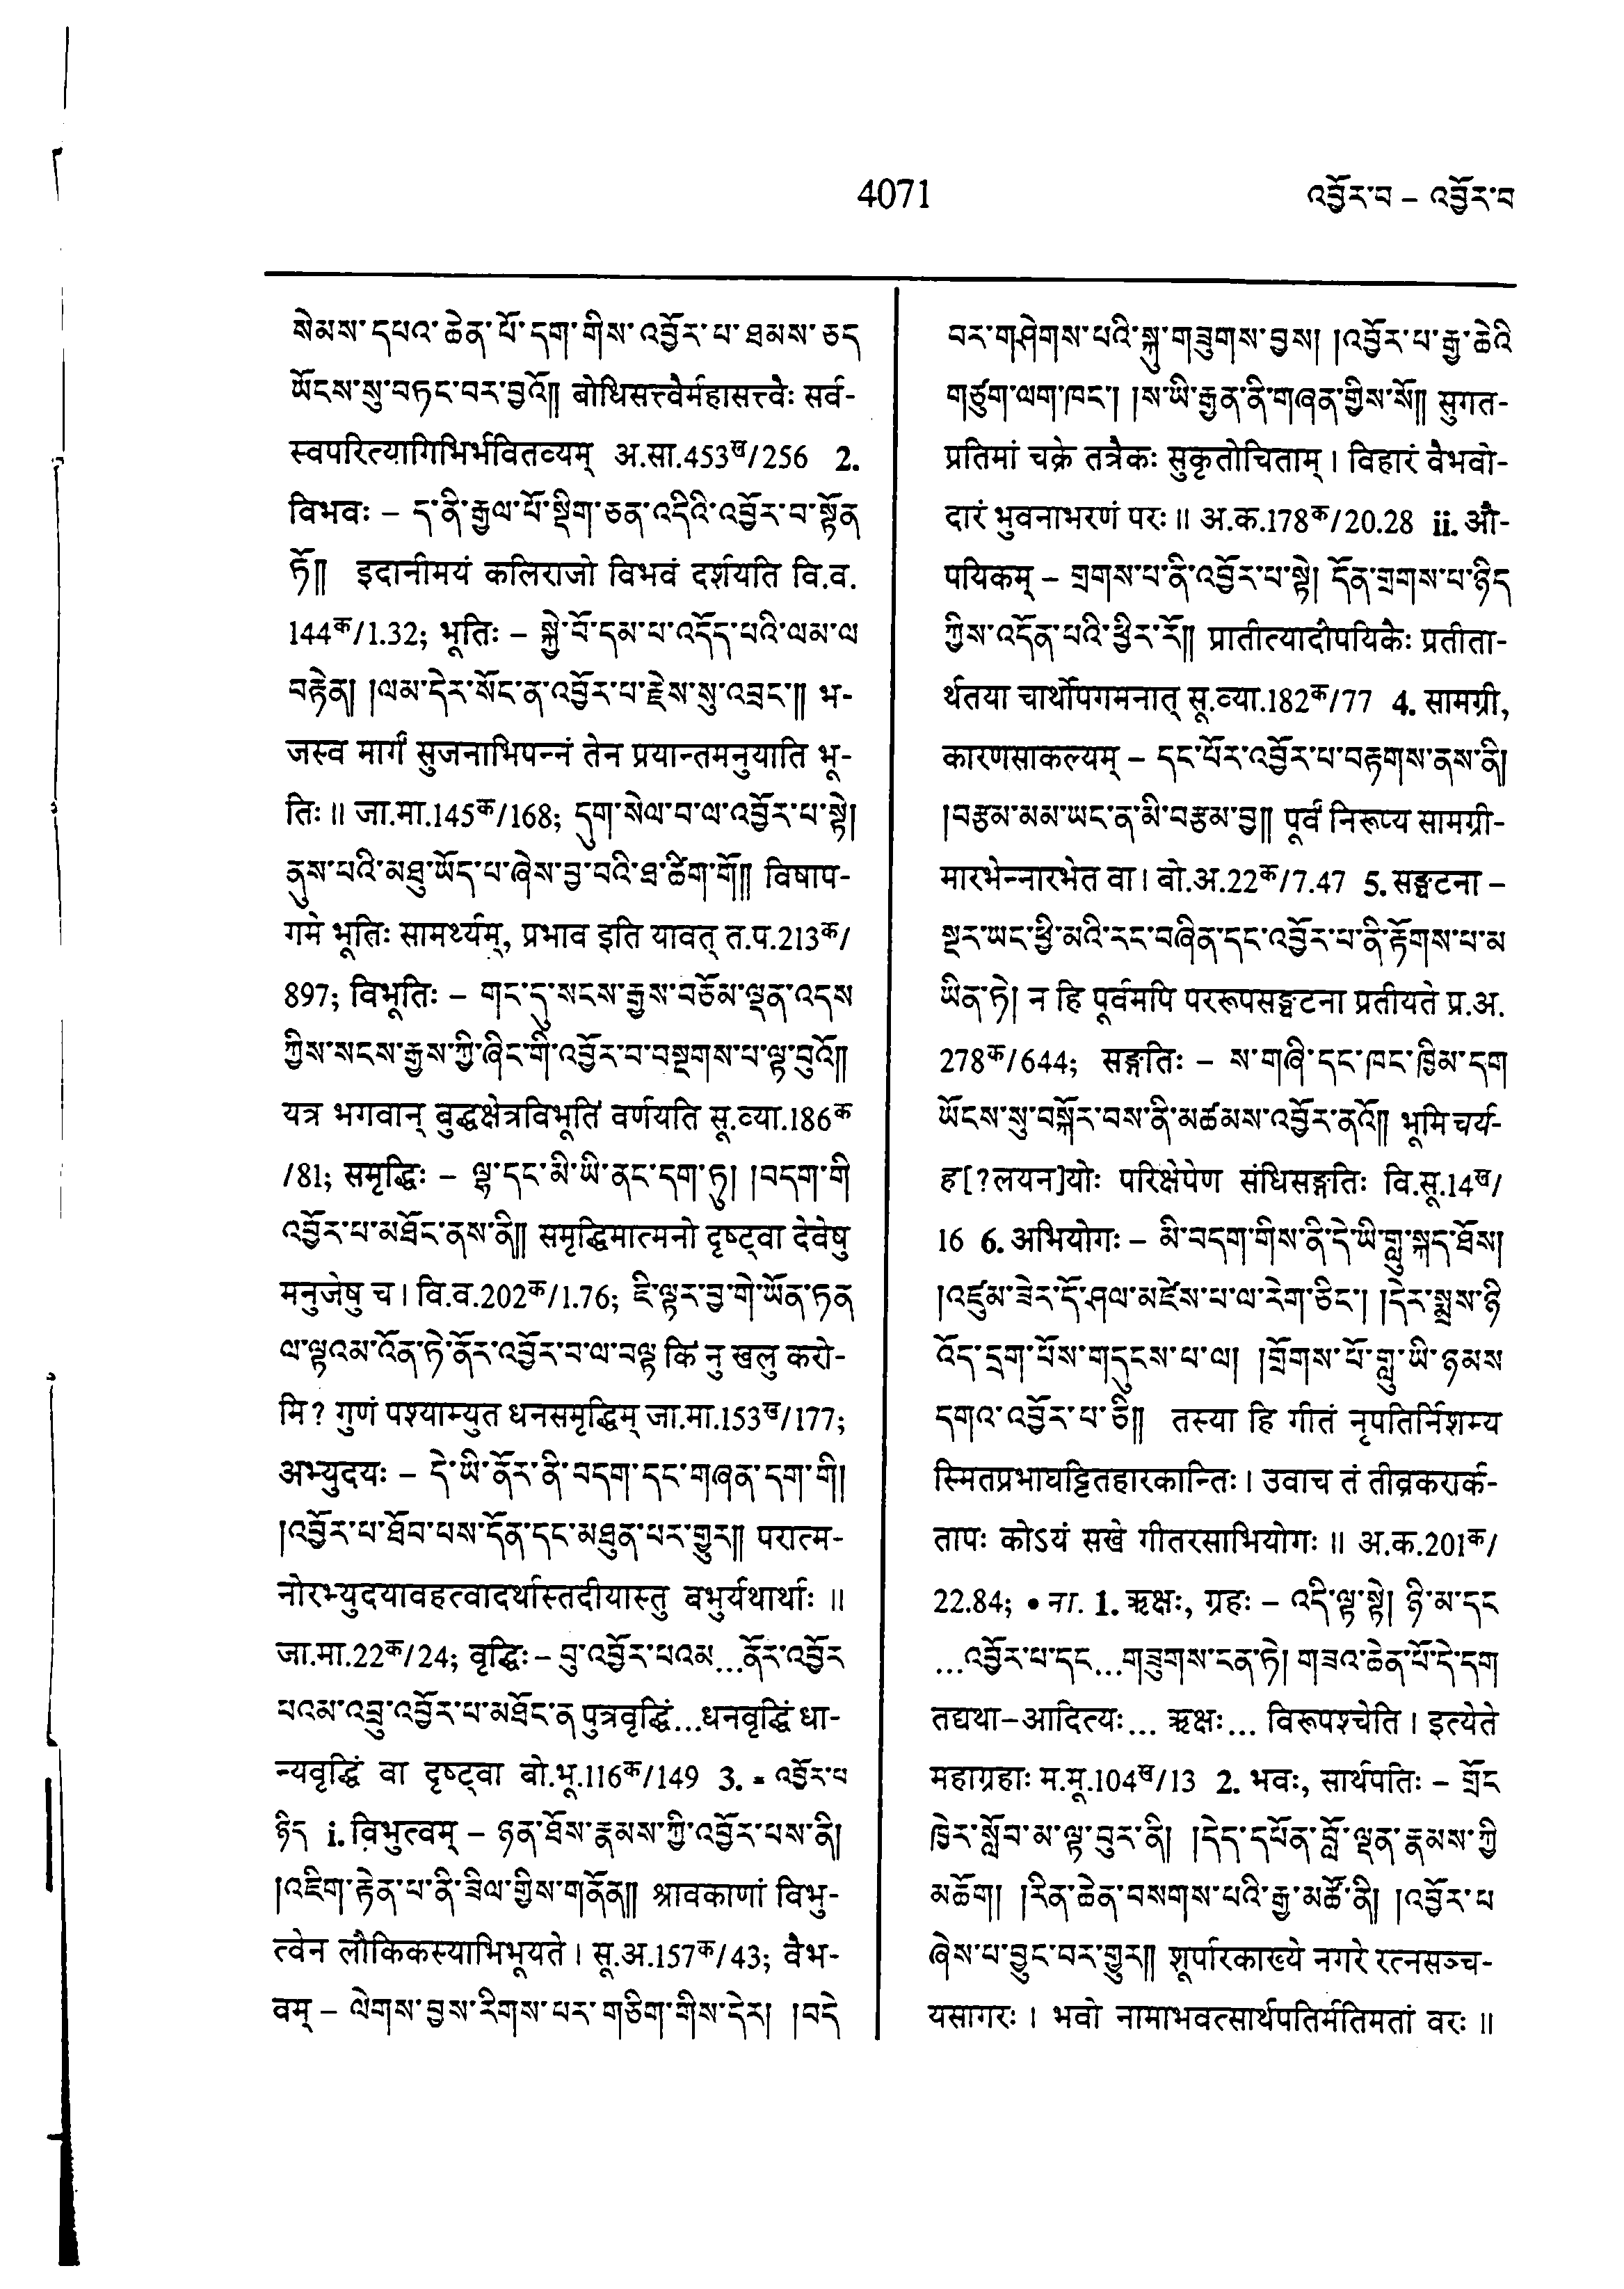 4071
འབྱོར་བ – འབྱོར་བ
སེམས་དཔའ་ཆེན་པོ་དག་གིས་འབྱོར་པ་ཐམས་ཅད
ཡོངས་སུ་བཏང་བར་བྱའོ༎ बोधिसत्त्वैर्महासत्त्वैः सर्व-
स्वपरित्यागिभिर्भवितव्यम् अ.सा.453ख/256 2.
विभवः – ད་ནི་རྒྱལ་པོ་སྡིག་ཅན་འདིའི་འབྱོར་བ་སྟོན
ཏོ༎ इदानीमयं कलिराजो विभवं दर्शयति वि.व.
144क/1.32; भूतिः – སྐྱེ་བོ་དམ་པ་འདོད་པའི་ལམ་ལ
བརྟེན། །ལམ་དེར་སོང་ན་འབྱོར་པ་རྗེས་སུ་འབྲང་༎ भ-
जस्व मार्गं सुजनाभिपन्नं तेन प्रयान्तमनुयाति भू-
तिः॥ जा.मा.145क/168; དུག་སེལ་བ་ལ་འབྱོར་པ་སྟེ།
ནུས་པའི་མཐུ་ཡོད་པ་ཞེས་བྱ་བའི་ཐ་ཚིག་གོ༎ विषाप-
गमे भूतिः सामर्थ्यम्, प्रभाव इति यावत् त.प.213क/
897; विभूतिः – གང་དུ་སངས་རྒྱས་བཅོམ་ལྡན་འདས
ཀྱིས་སངས་རྒྱས་ཀྱི་ཞིང་གི་འབྱོར་བ་བསྔགས་པ་ལྟ་བུའོ༎
यत्र भगवान् बुद्धक्षेत्रविभूतिं वर्णयति सू.व्या.186क
/81; समृद्धिः – ལྷ་དང་མི་ཡི་ནང་དག་ཏུ། །བདག་གི
འབྱོར་པ་མཐོང་ནས་ནི༎ समृद्धिमात्मनो दृष्ट्वा देवेषु
मनुजेषु च। वि.व.202क/1.76; ཇི་ལྟར་བྱ་གེ་ཡོན་ཏན
ལ་ལྟའམ་འོན་ཏེ་ནོར་འབྱོར་བ་ལ་བལྟ किं नु खलु करो-
मि? गुणं पश्याम्युत धनसमृद्धिम् जा.मा.153ख/177;
अभ्युदयः – དེ་ཡི་ནོར་ནི་བདག་དང་གཞན་དག་གི།
།འབྱོར་པ་ཐོབ་པས་དོན་དང་མཐུན་པར་གྱུར༎ परात्म-
नोरभ्युदयावहत्वादर्थास्तदीयास्तु बभुर्यथार्थाः॥
जा.मा.22क/24; वृद्धिः – བུ་འབྱོར་པའམ...ནོར་འབྱོར
པའམ་འབྲུ་འབྱོར་པ་མཐོང་ན पुत्रवृद्धिं...धनवृद्धिं धा-
न्यवृद्धिं वा दृष्ट्वा बो.भू.116क/149 3. ॰ འབྱོར་པ
ཉིད i. विभुत्वम् – ཉན་ཐོས་རྣམས་ཀྱི་འབྱོར་པས་ནི།
།འཇིག་རྟེན་པ་ནི་ཟིལ་གྱིས་གནོན༎ श्रावकाणां विभु-
त्वेन लौकिकस्याभिभूयते। सू.अ.157क/43; वैभ-
वम् – ལེགས་བྱས་རིགས་པར་གཅིག་གིས་དེར། །བདེ
བར་གཤེགས་པའི་སྐུ་གཟུགས་བྱས། །འབྱོར་པ་རྒྱ་ཆེའི
གཙུག་ལག་ཁང་། །ས་ཡི་རྒྱན་ནི་གཞན་གྱིས་སོ༎ सुगत-
प्रतिमां चक्रे तत्रैकः सुकृतोचिताम्। विहारं वैभवो-
दारं भुवनाभरणं परः॥ अ.क.178क/20.28 ii. औ-
पयिकम् – གྲགས་པ་ནི་འབྱོར་པ་སྟེ། དོན་གྲགས་པ་ཉིད
ཀྱིས་འདོན་པའི་ཕྱིར་རོ༎ प्रातीत्यादौपयिकैः प्रतीता-
र्थतया चार्थोपगमनात् सू.व्या.182क/77 4. सामग्री,
कारणसाकल्यम् – དང་པོར་འབྱོར་པ་བརྟགས་ནས་ནི།
།བརྩམ་མམ་ཡང་ན་མི་བརྩམ་བྱ༎ पूर्वं निरूप्य सामग्री-
मारभेन्नारभेत वा। बो.अ.22क/7.47 5. सङ्घटना –
སྔར་ཡང་ཕྱི་མའི་རང་བཞིན་དང་འབྱོར་པ་ནི་རྟོགས་པ་མ
ཡིན་ཏེ། न हि पूर्वमपि पररूपसङ्घटना प्रतीयते प्र.अ.
278क/644; सङ्गतिः – ས་གཞི་དང་ཁང་ཁྱིམ་དག
ཡོངས་སུ་བསྐོར་བས་ནི་མཚམས་འབྱོར་ནའོ༎ भूमि चर्य-
ह[?लयन]योः परिक्षेपेण संधिसङ्गतिः वि.सू.14ख/
16 6. अभियोगः – མི་བདག་གིས་ནི་དེ་ཡི་གླུ་སྐད་ཐོས།
།འཛུམ་ཟེར་དོ་ཤལ་མཛེས་པ་ལ་རེག་ཅིང་། །དེར་སྨྲས་ཉི
འོད་དྲག་པོས་གདུངས་པ་ལ། །གྲོགས་པོ་གླུ་ཡི་ཉམས
དགའ་འབྱོར་པ་ཅི༎ तस्या हि गीतं नृपतिर्निशम्य
स्मितप्रभाघट्टितहारकान्तिः। उवाच तं तीव्रकरार्क-
तापः कोऽयं सखे गीतरसाभियोगः॥ अ.क.201क/
22.84; • ना. 1. ऋक्षः, ग्रहः – འདི་ལྟ་སྟེ། ཉི་མ་དང
...འབྱོར་པ་དང...གཟུགས་ངན་ཏེ། གཟའ་ཆེན་པོ་དེ་དག
तद्यथा–आदित्यः... ऋक्षः... विरूपश्चेति। इत्येते
महाग्रहाः म.मू.104ख/13 2. भवः, सार्थपतिः – གྲོང
ཁྱེར་སློབ་མ་ལྟ་བུར་ནི། །དེད་དཔོན་བློ་ལྡན་རྣམས་ཀྱི
མཆོག། །རིན་ཆེན་བསགས་པའི་རྒྱ་མཚོ་ནི། །འབྱོར་པ
ཞེས་པ་བྱུང་བར་གྱུར༎ शूर्पारकाख्ये नगरे रत्नसञ्च-
यसागरः। भवो नामाभवत्सार्थपतिर्मतिमतां वरः॥